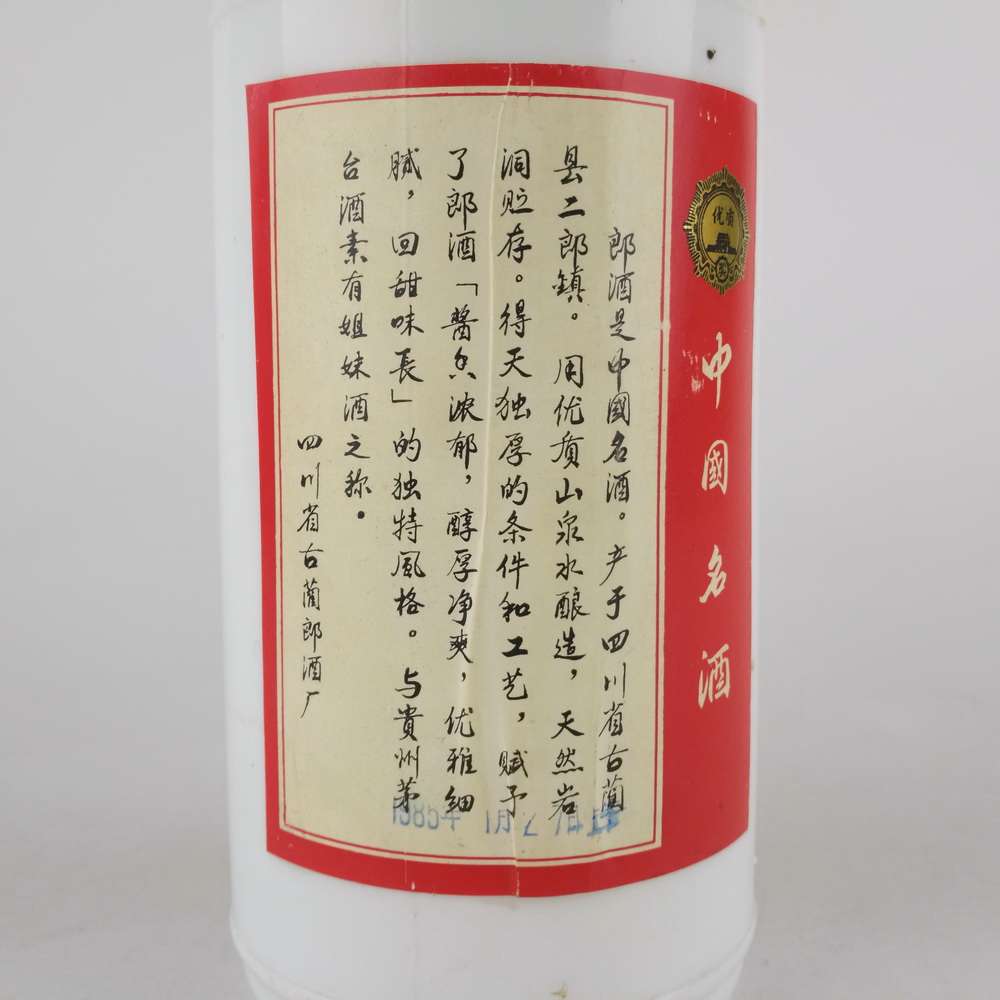 优质
中國名酒
郎酒是中國名酒。产于四川省古蔺
县二郎鎮。用优质山泉水酿造，天然岩
洞贮存。得天独厚的条件和工艺，赋予
了郎酒「醬香浓郁，醇厚净爽，优雅细
腻，回甜味長」的独特風格。与貴州茅
台酒素有姐妹酒之称。
四川省古蔺郎酒厂